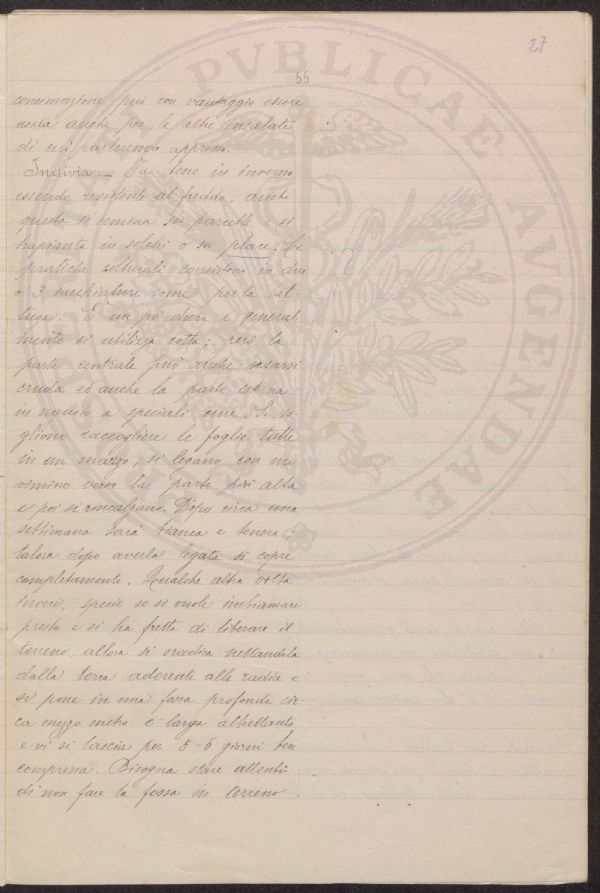 27
55
PVBLICAE AVGENDAE
concimazione può con vantaggio essere
usata anche per le altre insalate
di cui parleremo appresso.
Indivia. — Va bene in inverno
essendo resistente al freddo; anche
questa si semina su parcelle e si
trapianta in solchi o su place. Le
pratiche colturali consistono in due
o 3 sarchiature come per la lat-
tuga. È un pò dura e general
mente si utilizza cotta; però la
parte centrale può anche usarsi
cruda ed anche la parte esterna
in seguito a speciali cure. Si so
gliono raccogliere le foglie tutte
in un mazzo, si legano con un
vimine verso la parte più alta
e poi si rincalzano. Dopo circa una
settimana sarà bianca e tenera;
talora dopo averla legata si copre
completamente. Qualche altra volta
invece, specie se si vuole imbiancare
presto e si ha fretta di liberare il
terreno, allora si sradica nettandola
dalla terra aderente alle radici e
si pone in una fossa profonda cir
ca mezzo metro e larga altrettanto
e vi si lascia per 5-6 giorni ben
compressa. Bisogna stare attenti
di non fare la fossa in terreno